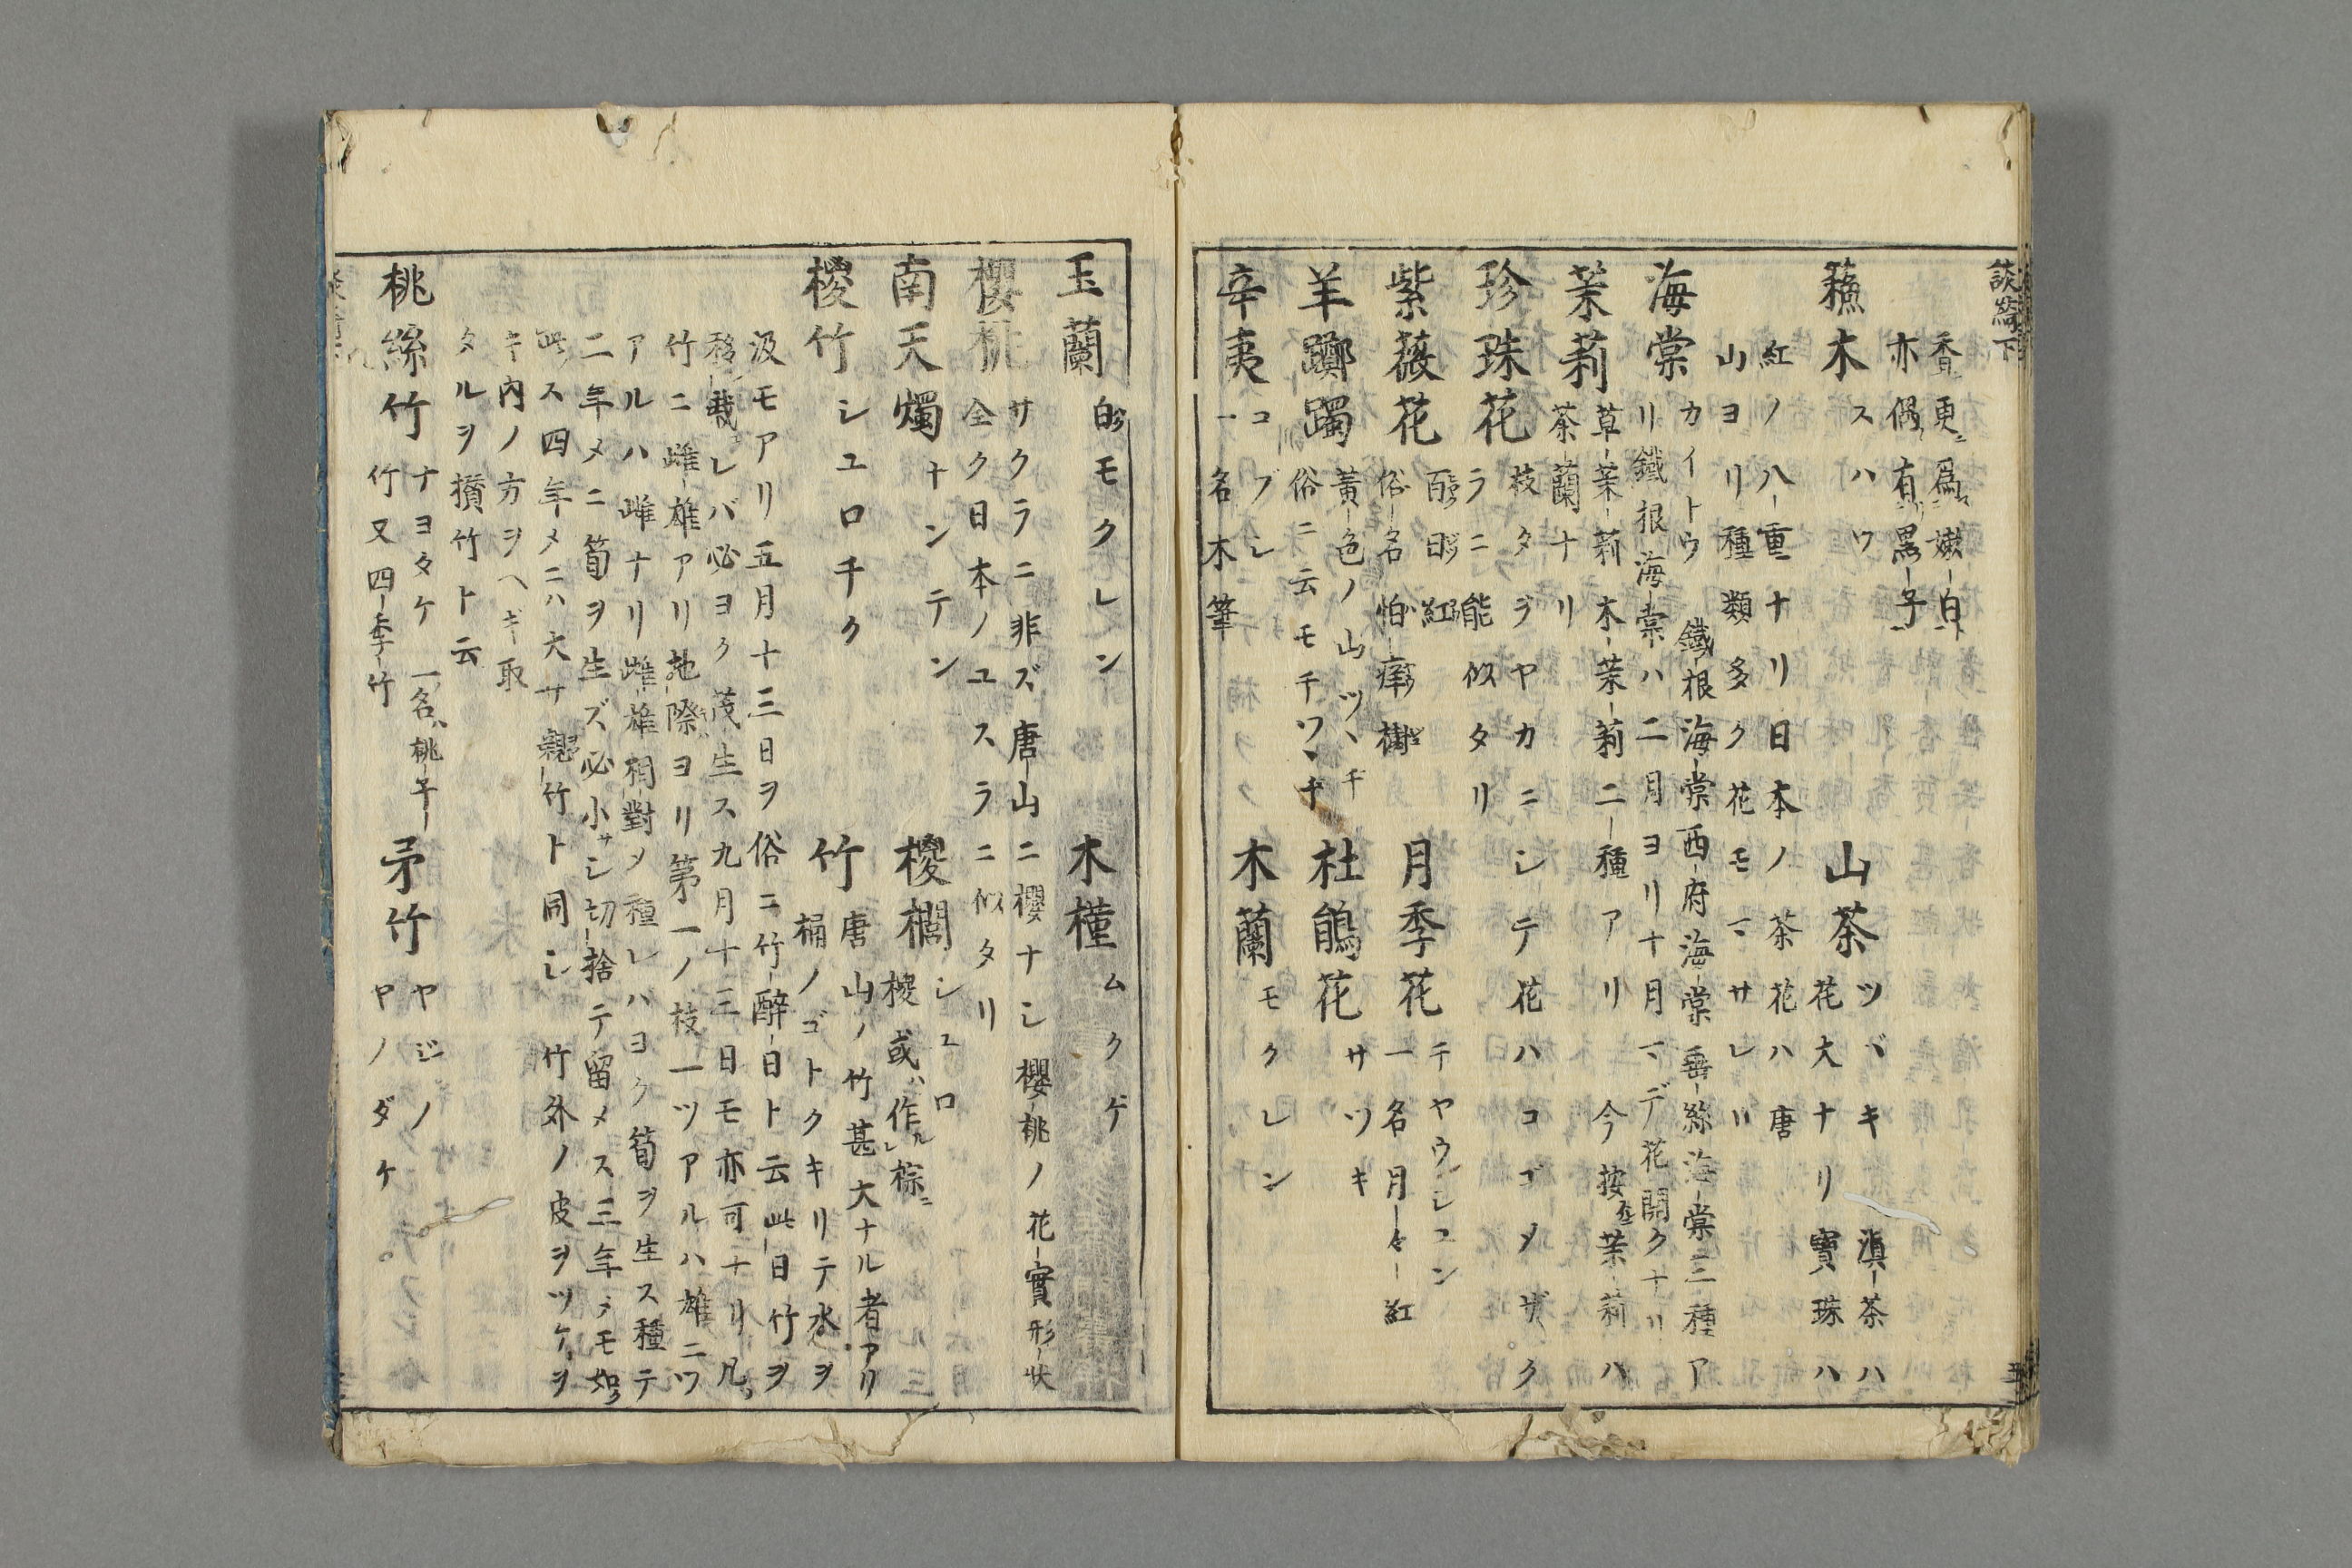 談綺下
香更ニ爲嫩白
亦偶有黒子
蘓木 スハウ
山茶 ツバキ 滇茶ハ
花大ナリ寳珠ハ
紅ノ八重ナリ日本ノ茶花ハ唐
山ヨリ種類多ク花モマサレリ
海棠 カイトウ 鐵根海棠西府海棠垂絲海棠三種ア
リ鐵根海棠ハ二月ヨリ十月マデ花開クナリ
茉莉 草茉莉木茉莉二種アリ 今按茉莉ハ
茶蘭ナリ
珍珠花 枝タヲヤカニシテ花ハコゴメザク
ラニ能似タリ
紫薇花 百日紅
俗名怕痒樹
月季花 チヤウシユン
一名月々紅
羊躑躅 黄色ノ山ツヽヂ
俗ニ云モチツヽヂ
杜鵑花 サツキ
辛夷 コブシ
一名木筆
木蘭 モクレン
玉蘭 白モクレン
木槿 ムクゲ
櫻桃 サクラニ非ズ唐山ニ櫻ナシ櫻桃ノ花實形状
全ク日本ノユスラニ似タリ
南天燭 ナンテン
椶櫚 シユロ
椶或ハ作ル棕ニ
椶竹 シユロチク
竹 唐山ノ竹甚大ナル者アリ
桶ノゴトクキリテ水ヲ
汲モアリ五月十三日ヲ俗ニ竹醉日ト云此日竹ヲ
移栽レバ必ヨク茂生ス九月十三日モ亦可ナリ凡
竹ニ雌雄アリ地際ヨリ第一ノ枝一ツアルハ雄二ツ
アルハ雌ナリ雌雄相對メ種レハヨク筍ヲ生ス種テ
二年メニ筍ヲ生ズ必小サシ切捨テ留メス三年メモ如
此ス四年メニハ大サ親竹ト同シ 竹外ノ皮ヲツケヲ
キ内ノ方ヲヘギ取
タルヲ攅竹ト云
桃絲竹 ナヨタケ 一名桃竿
竹又四季竹
矛竹 ヤジノ
ヤノダケ